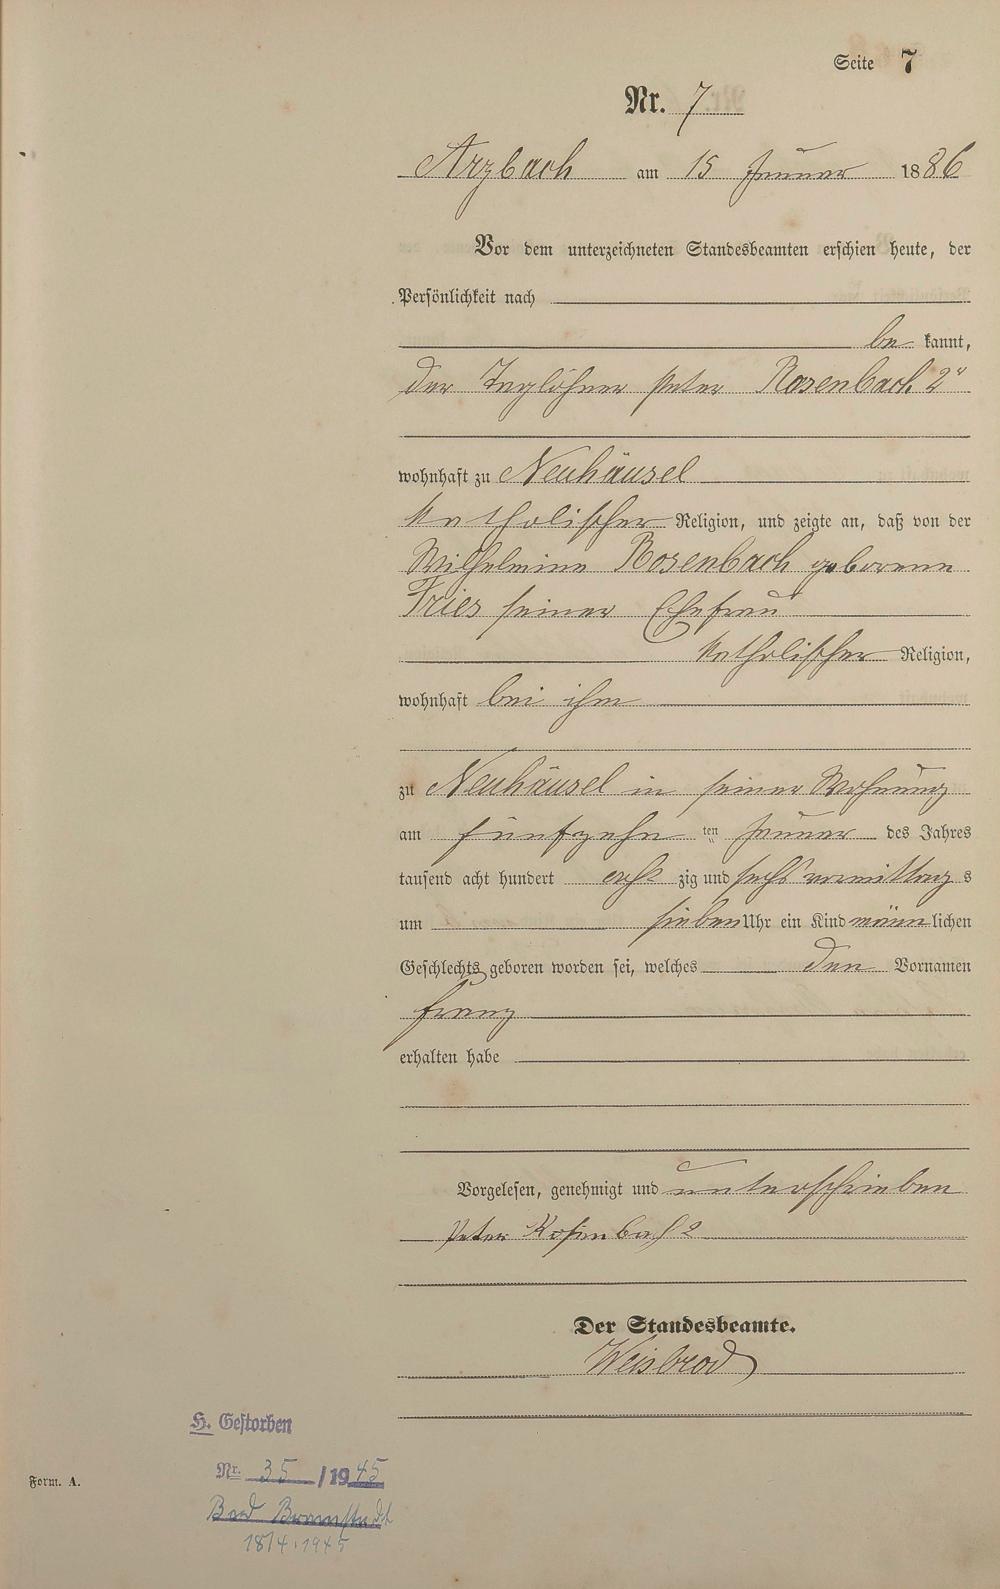 Seite 7
Nr. 7
Arzbach am 15 Januar 1886
Vor dem unterzeichneten Standesbeamten erschien heute, der
Persönlichkeit nach
be kannt,
der Taglöhner Peter Rosenbach 2"
wohnhaft zu Neuhäusel
katholischer Religion, und zeigte an, daß von der
Wilhelmine Rosenbach geborene
Fries seiner Ehefrau
katholischer Religion,
wohnhaft bei ihm
zu Neuhäusel in seiner Wohnung
am fünfzehn ten Januar des Jahres
tausend acht hundert acht zig und sechs vormittag s
um sieben Uhr ein Kind männlichen
Geschlechts geboren worden sei, welches den Vornamen
Franz
erhalten habe
Vorgelesen, genehmigt und unterschrieben
Peter Rosenbach 2
Der Standesbeamte.
Weisbrod
H. Gestorben
Nr. 35 /1945
Bad Bramstedt
18/4.1945
Form. A.